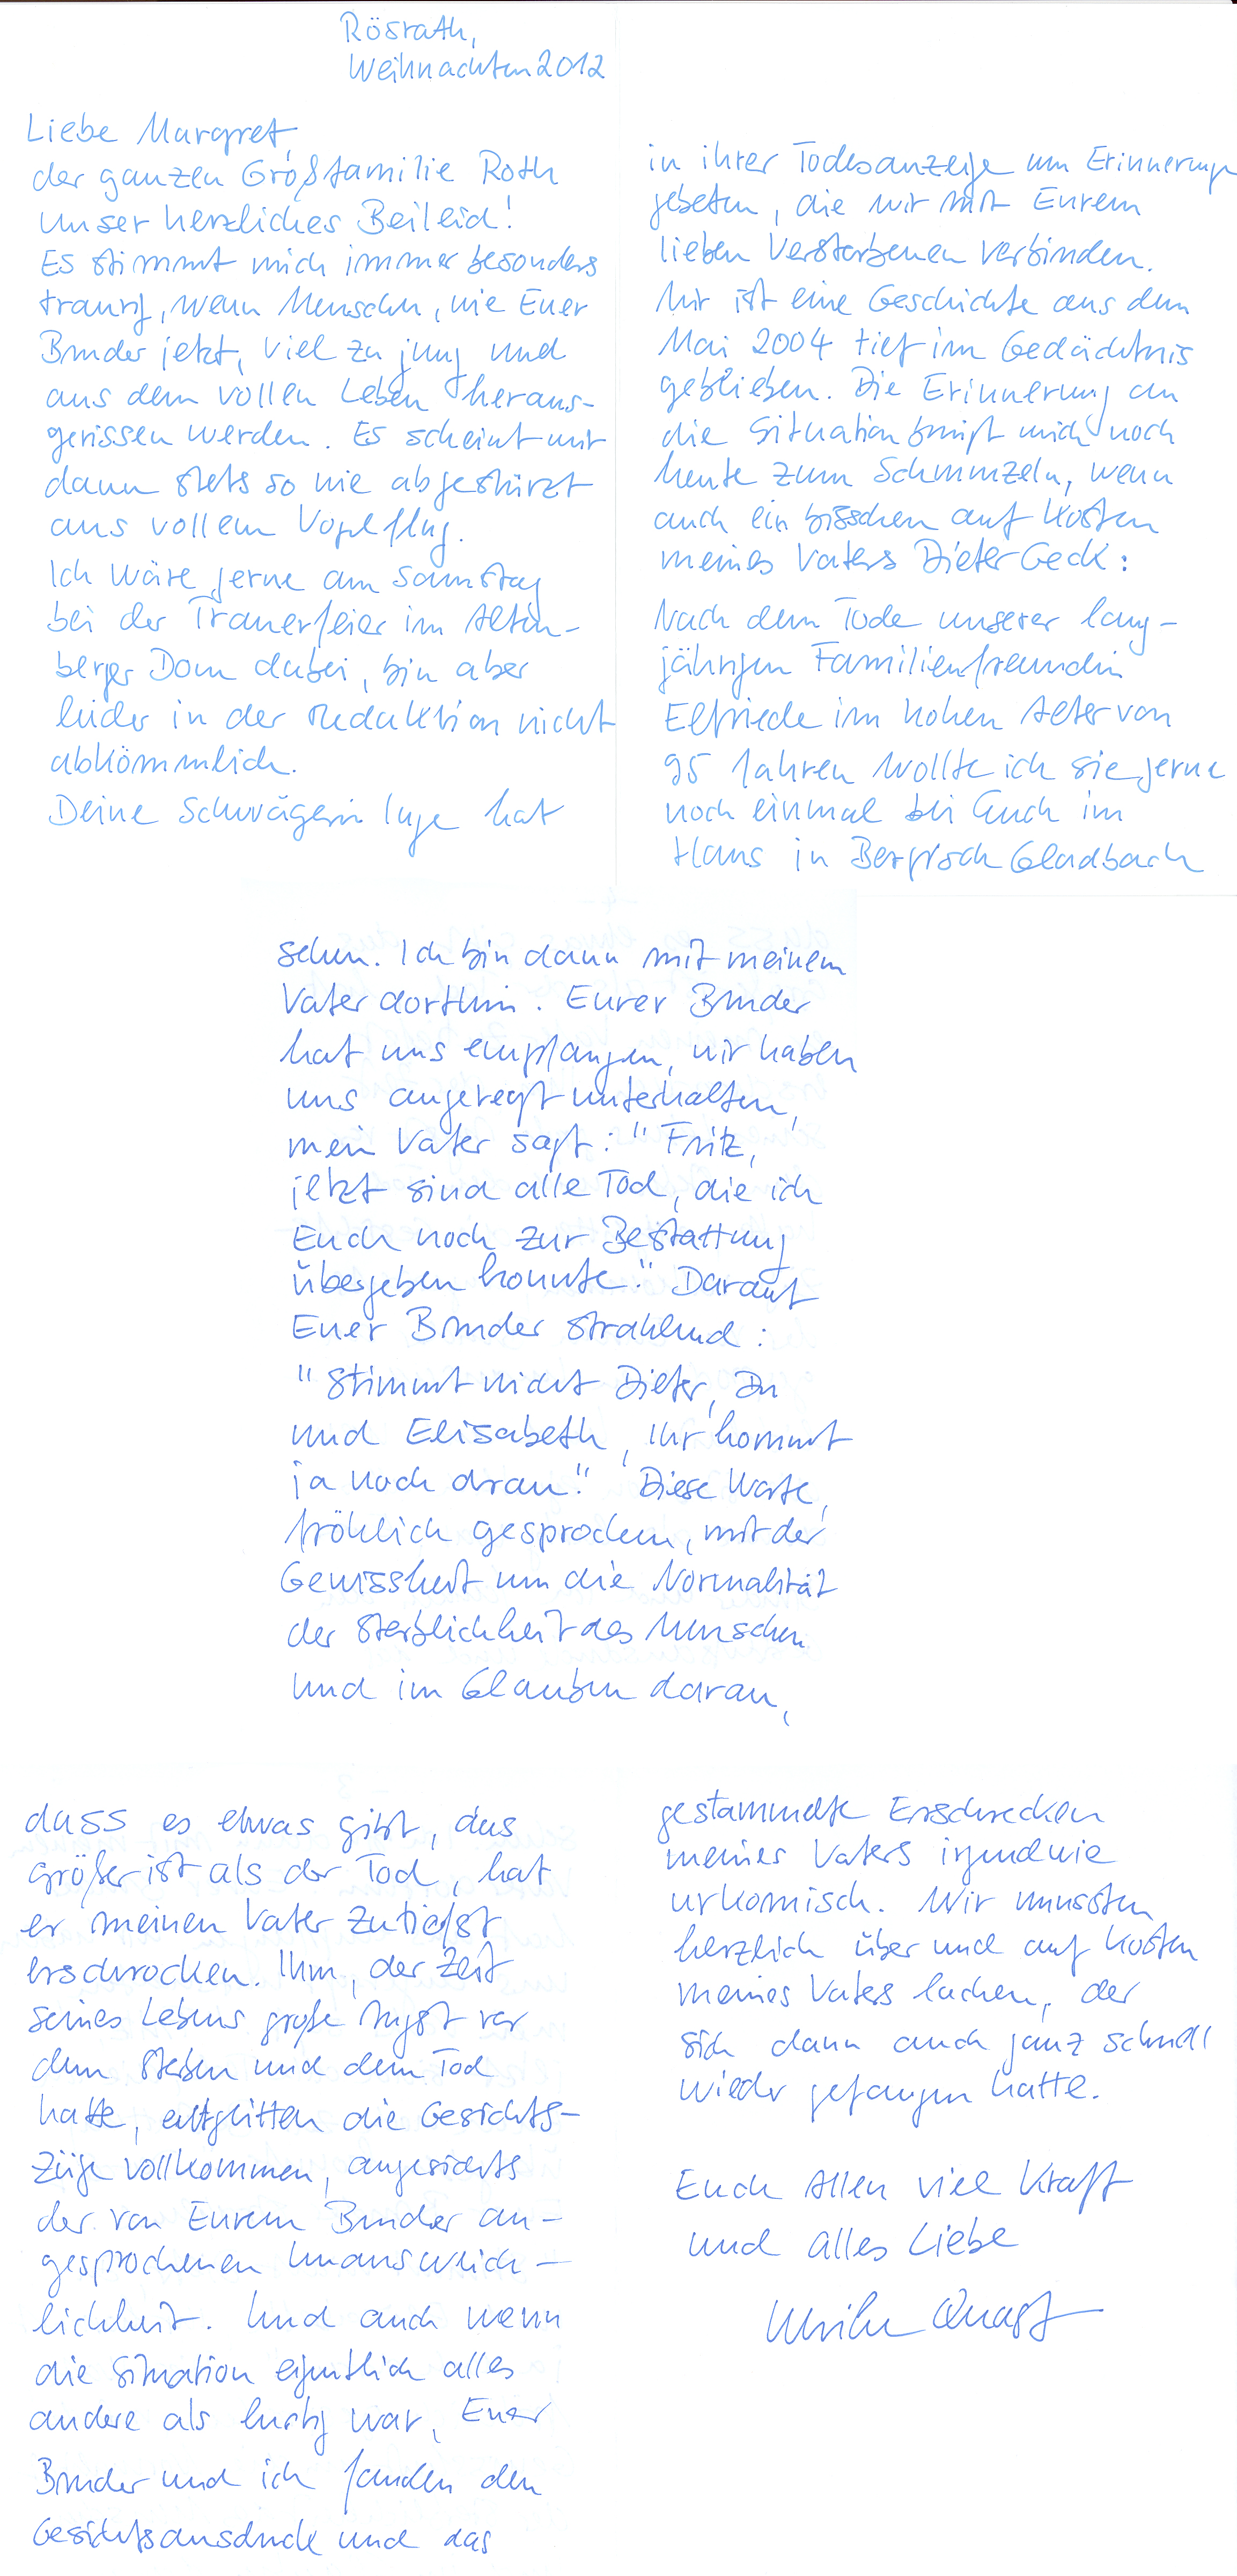 Rösrath,
Weihnachten 2012
Liebe Margret,
der ganzen Großfamilie Roth
unser herzliches Beileid!
Es stimmt mich immer besonders
traurig, wenn Menschen, wie Euer
Bruder jetzt, viel zu jung und
aus dem vollen Leben heraus-
gerissen werden. Es scheint mir
dann stets so wie abgestürzt
aus vollem Vogelflug.
Ich wäre gerne am Samstag
bei der Trauerfeier im Alten-
berger Dom dabei, bin aber
leider in der Redaktion nicht
abkömmlich.
Deine Schwägerin Inge hat
in ihrer Todesanzeige um Erinnerungen
gebeten, die wir mit Eurem
lieben Verstorbenen verbinden.
Mir ist eine Geschichte aus dem
Mai 2004 tief im Gedächtnis
geblieben. Die Erinnerung an
die Situation bringt mich noch
heute zum Schmunzeln, wenn
auch ein bisschen auf Kosten
meines Vaters Dieter Geck:
Nach dem Tode unserer lang-
jährigen Familienfreundin
Elfriede im hohen Alter von
95 Jahren wollte ich sie gerne
noch einmal bei Euch im
Haus in Bergisch Gladbach
sehen. Ich bin dann mit meinem
Vater dorthin. Eurer Bruder
hat uns empfangen, wir haben
uns angeregt unterhalten,
mein Vater sagt: "Fritz,
jetzt sind alle Tod, die ich
Euch noch zur Bestattung
übergeben konnte." Darauf
Euer Bruder strahlend:
"Stimmt nicht Dieter, Du
und Elisabeth, Ihr kommt
ja noch dran." Diese Worte,
fröhlich gesprochen, mit der
Gewissheit um die Normalität
der Sterblichkeit des Menschen
und im Glauben daran,
dass es etwas gibt, das
größer ist als der Tod, hat
er meinen Vater zutiefst
erschrocken. Ihm, der Zeit
seines Lebens große Angst vor
dem Sterben und dem Tod
hatte, entglitten die Gesichts-
züge vollkommen, angesichts
der von Eurem Bruder an-
gesprochenen Unausweich-
lichkeit. Und auch wenn
die Situation eigentlich alles
andere als lustig war, Euer
Bruder und ich fanden den
Gesichtsausdruck und das
gestammelte Erschrecken
meines Vaters irgendwie
urkomisch. Wir mussten
herzlich über und auf Kosten
meines Vaters lachen, der
sich dann auch ganz schnell
wieder gefangen hatte.
Euch Allen viel Kraft
und alles Liebe
Ulrike Quast